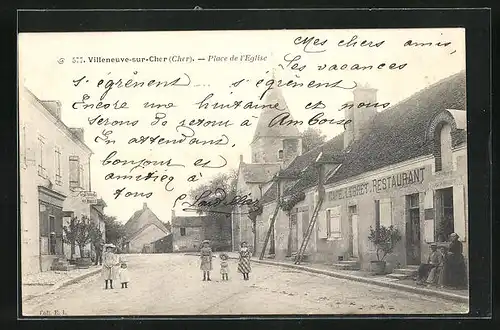 577. Villeneuve-sur-Cher (Cher). — Place de l'Eglise
Mes chers amis,
Les vacances
s'égrènent ... s'égrènent
Encore une huitaine et nous
serons de retour à Amboise
En attendant,
bonjour et
amitiés à
tous
RESTAURANT
Coll. E. L.